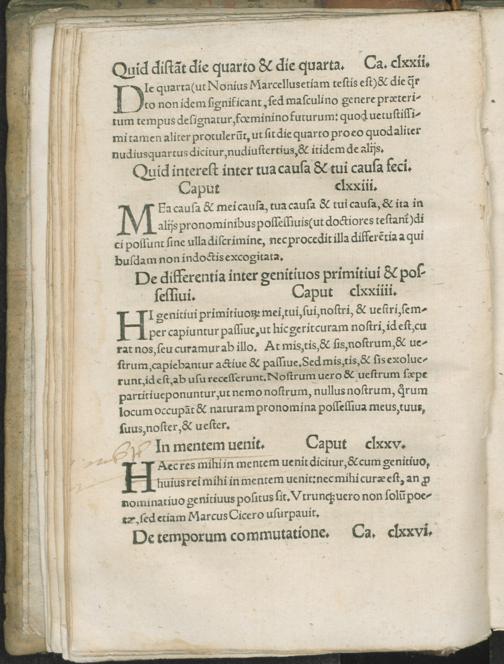 Quid distāt die quarto & die quarta. Ca. clxxii.
DIe quarta(ut Nonius Marcellus etiam testis est)& die q̄r
to non idem significant, sed masculino genere præteri-
tum tempus designatur, fœminino futurum: quod uetustissi-
mi tamen aliter protulerūt, ut sit die quarto pro eo quod aliter
nudiusquartus dicitur, nudiustertius, & itidem de alijs.
Quid interest inter tua causa & tui causa feci.
Caput clxxiii.
MEa causa & mei causa, tua causa & tui causa, & ita in
alijs pronominibus possessiuis(ut doctiores testant᷑)di
ci possunt sine ulla discrimine, nec procedit illa differētia a qui
busdam non indoctis excogitata.
De differentia inter genitiuos primitiui & pos-
sessiui. Caput clxxiiii.
HI genitiui primitiuoꝝ: mei, tui, sui, nostri, & uestri, sem-
per capiuntur passiue, ut hic gerit curam nostri, id est, cu
rat nos, seu curamur ab illo. At mis, tis, & sis, nostrum, & ue-
strum, capiebantur actiue & passiue. Sed mis, tis, & sis exolue-
runt, id est, ab usu recesserunt. Nostrum uero & uestrum sæpe
partitiue ponuntur, ut nemo nostrum, nullus nostrum, q̄rum
locum occupāt & naturam pronomina possessiua meus, tuus,
suus, noster, & uester.
In mentem uenit. Caput clxxv.
HAec res mihi in mentem uenit dicitur, & cum genitiuo,
huius rei mihi in mentem uenit: nec mihi curæ est, an ꝓ
nominatiuo genitiuus positus sit. Vtrunq; uero non solū poe-
tæ, sed etiam Marcus Cicero usurpauit.
De temporum commutatione. Ca. clxxvi.